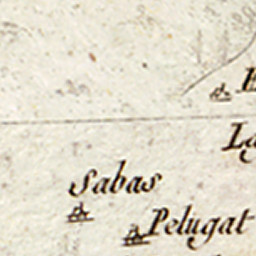 La
Sabas
Pelugat